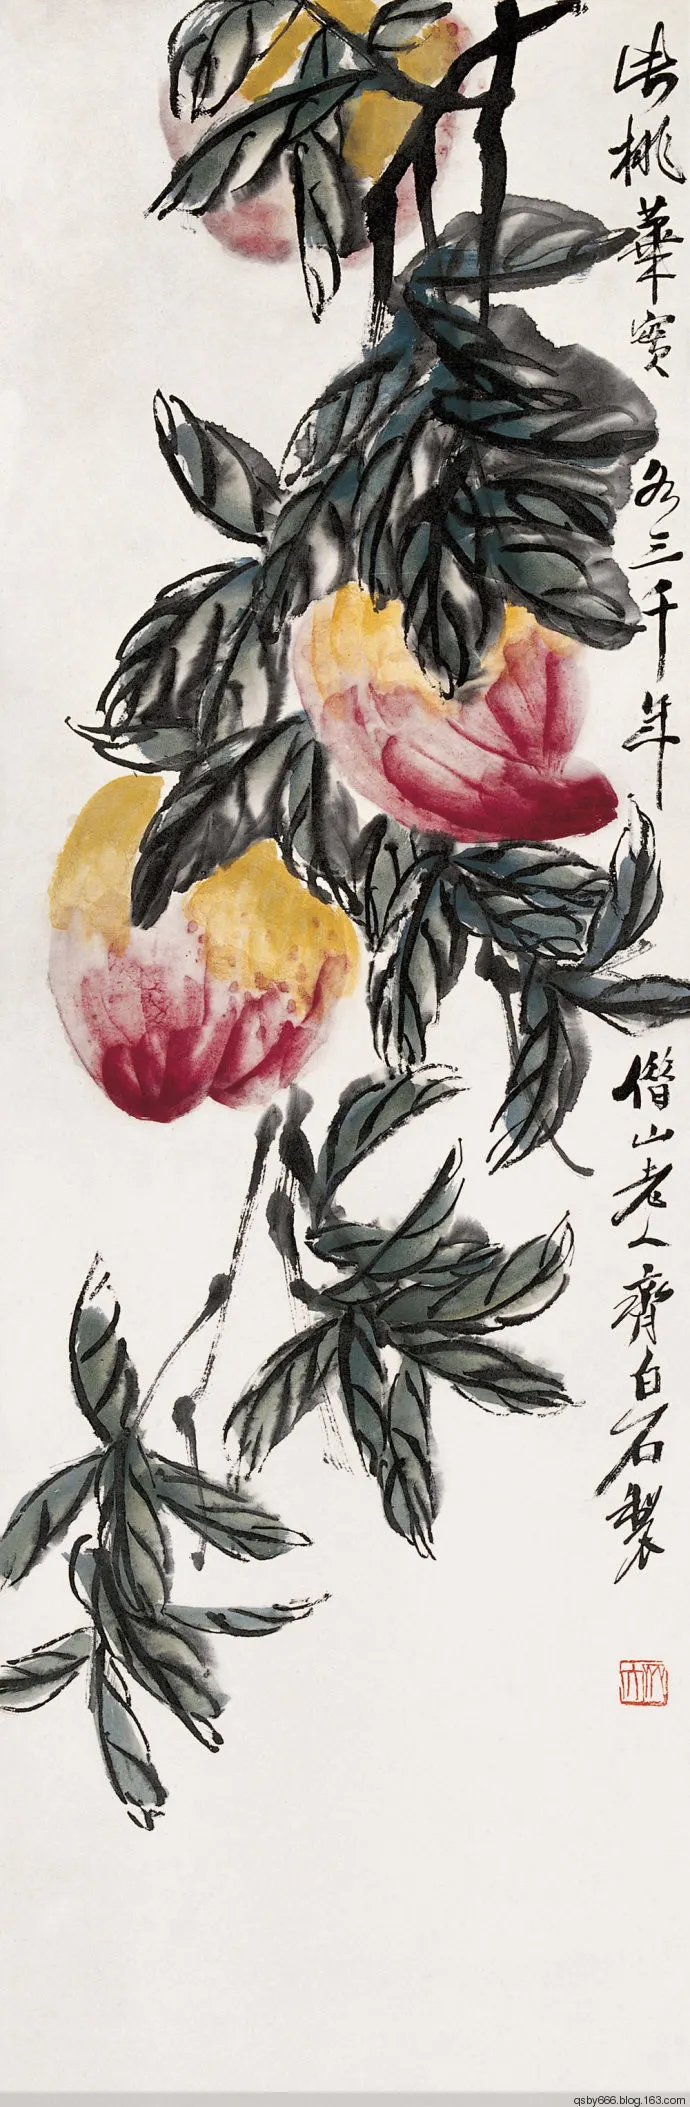 此桃華實各三千年
借山老人齊白石製
qsby666.blog.163.com